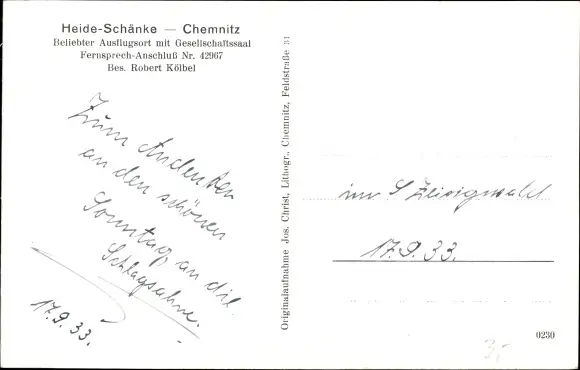 Heide-Schänke — Chemnitz
Beliebter Ausflugsort mit Gesellschaftssaal
Fernsprech-Anschluß Nr. 42967
Bes. Robert Kölbel
Zum Andenken
an den schönen
Sonntag, an die
Schlagsahne.
17.9.33.
Originalaufnahme Jos. Christ, Lithogr., Chemnitz, Feldstraße 31
im Zeisigwald
17.9.33.
0230
3,-